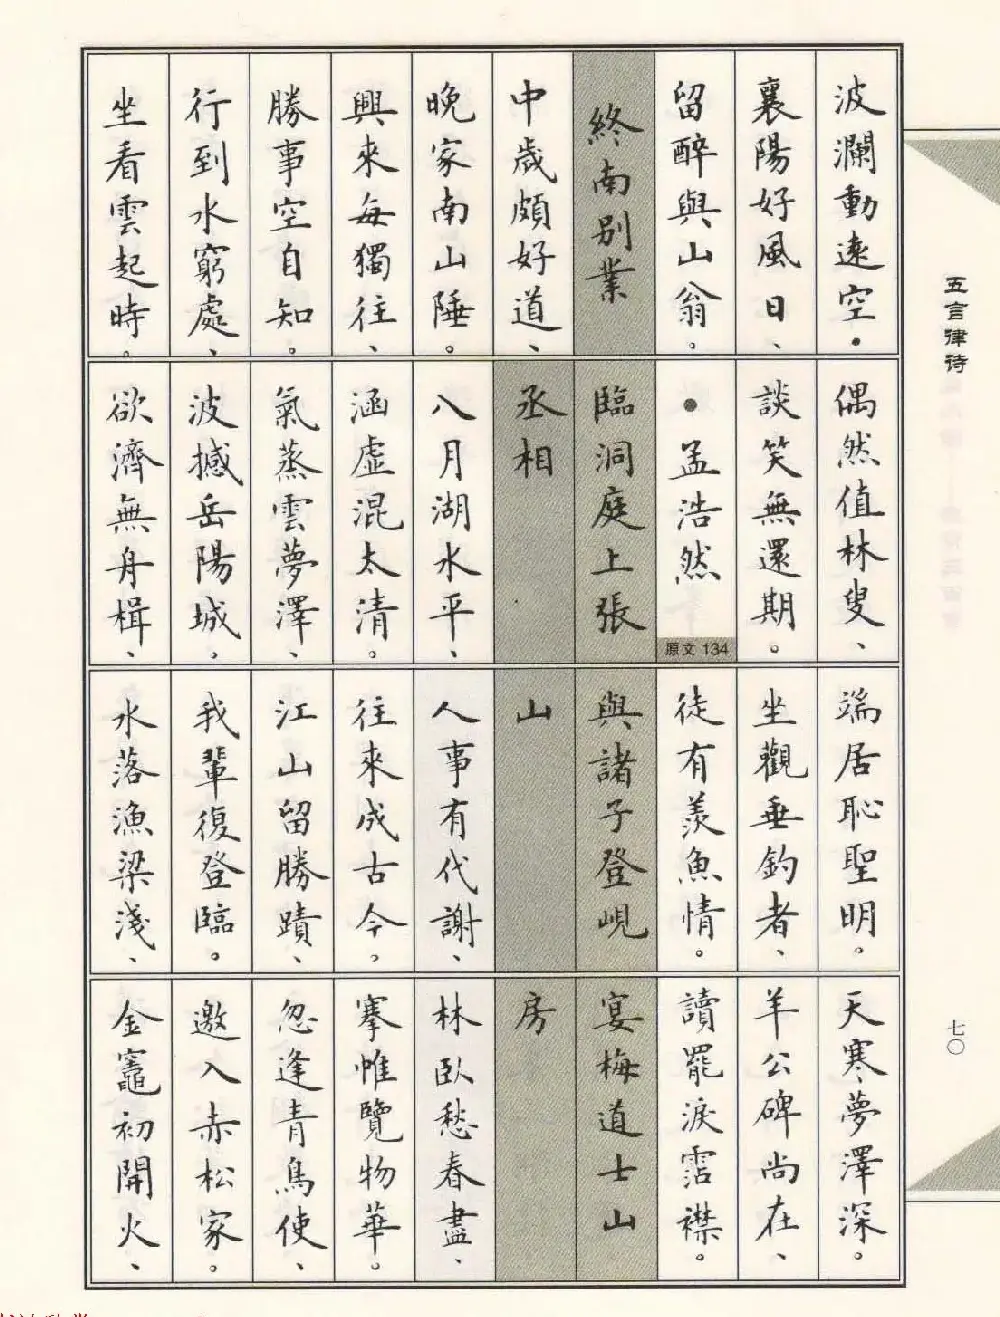 波瀾動遠空。
襄陽好風日、
留醉與山翁。
終南別業
中歲頗好道、
晚家南山陲。
興來每獨往、
勝事空自知。
行到水窮處、
坐看雲起時。
偶然值林叟、
談笑無還期。
●孟浩然
原文 134
臨洞庭上張
丞相
八月湖水平、
涵虛混太清。
氣蒸雲夢澤、
波撼岳陽城。
欲濟無舟楫、
端居恥聖明。
坐觀垂釣者、
徒有羨魚情。
與諸子登峴
山
人事有代謝、
往來成古今。
江山留勝蹟、
我輩復登臨。
水落漁梁淺、
天寒夢澤深。
羊公碑尚在、
讀罷淚霑襟。
宴梅道士山
房
林臥愁春盡、
搴帷覽物華。
忽逢青鳥使、
邀入赤松家。
金竈初開火、
五言律詩
七〇